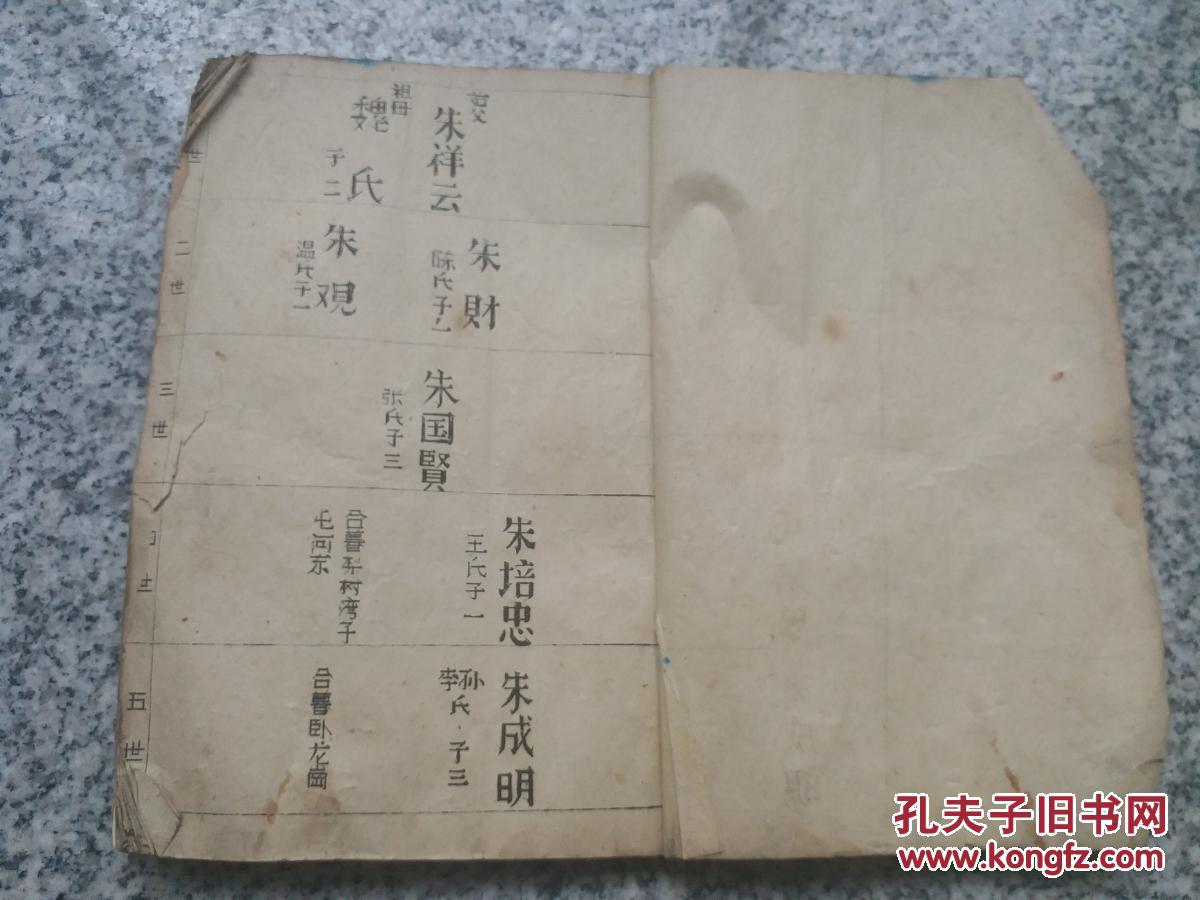 朱祥云
祖母
魏氏
子二
世
朱財
陈氏子一
朱观
温氏子一
二世
朱国賢
张氏子三
三世
朱培忠
王氏子一
合墓梨树湾子
七河东
世
朱成明
孙李氏·子三
合墓卧龙崗
五世
孔夫子旧书网
www.kongfz.com